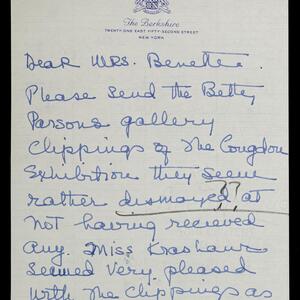 The Berkshire
TWENTY ONE EAST FIFTY-SECOND STREET
NEW YORK
Dear Mrs. Benette.
Please send the Betty
Parsons gallery
Clippings of The Congdon
Exhibition they seem
rather dismayed at
not having recieved
any. Miss Krashaur
seemed very pleased
with the clippings as